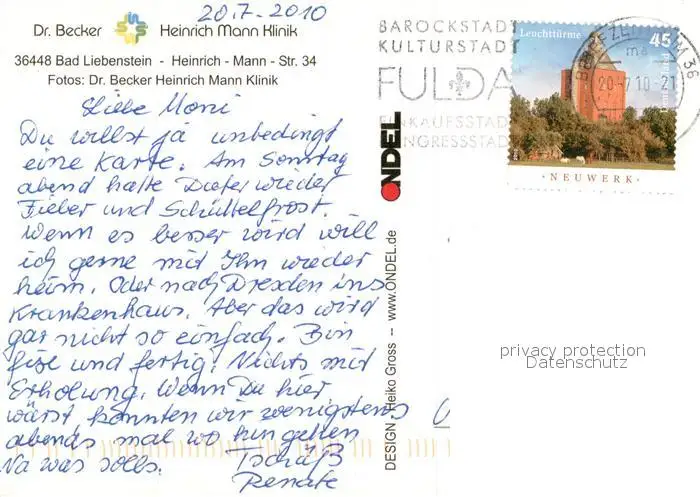 20.7.2010
Dr. Becker Heinrich Mann Klinik
36448 Bad Liebenstein - Heinrich - Mann - Str. 34
Fotos: Dr. Becker Heinrich Mann Klinik
Liebe Moni
Du willst ja unbedingt
eine Karte. Am Sonntag
abend hatte Dieter wieder
Fieber und Schüttelfrost.
Wenn es besser wird will
ich gerne mit Ihm wieder
heim. Oder nach Dresden ins
Krankenhaus. Aber das wird
gar nicht so einfach. Bin
fix und fertig. Nichts mit
Erholung. Wenn Du hier
wärst könnten wir wenigstens
abends mal wo hin gehen
Na was solls. Tschüß
Renate
DESIGN Heiko Gross -- www.ONDEL.de
ONDEL
BAROCKSTADT
KULTURSTADT
FULDA
EINKAUFSSTADT
KONGRESSSTADT
Leuchttürme
45
BRIEFZENTRUM 36
20.-7.10.-21
NEUWERK
privacy protection
Datenschutz